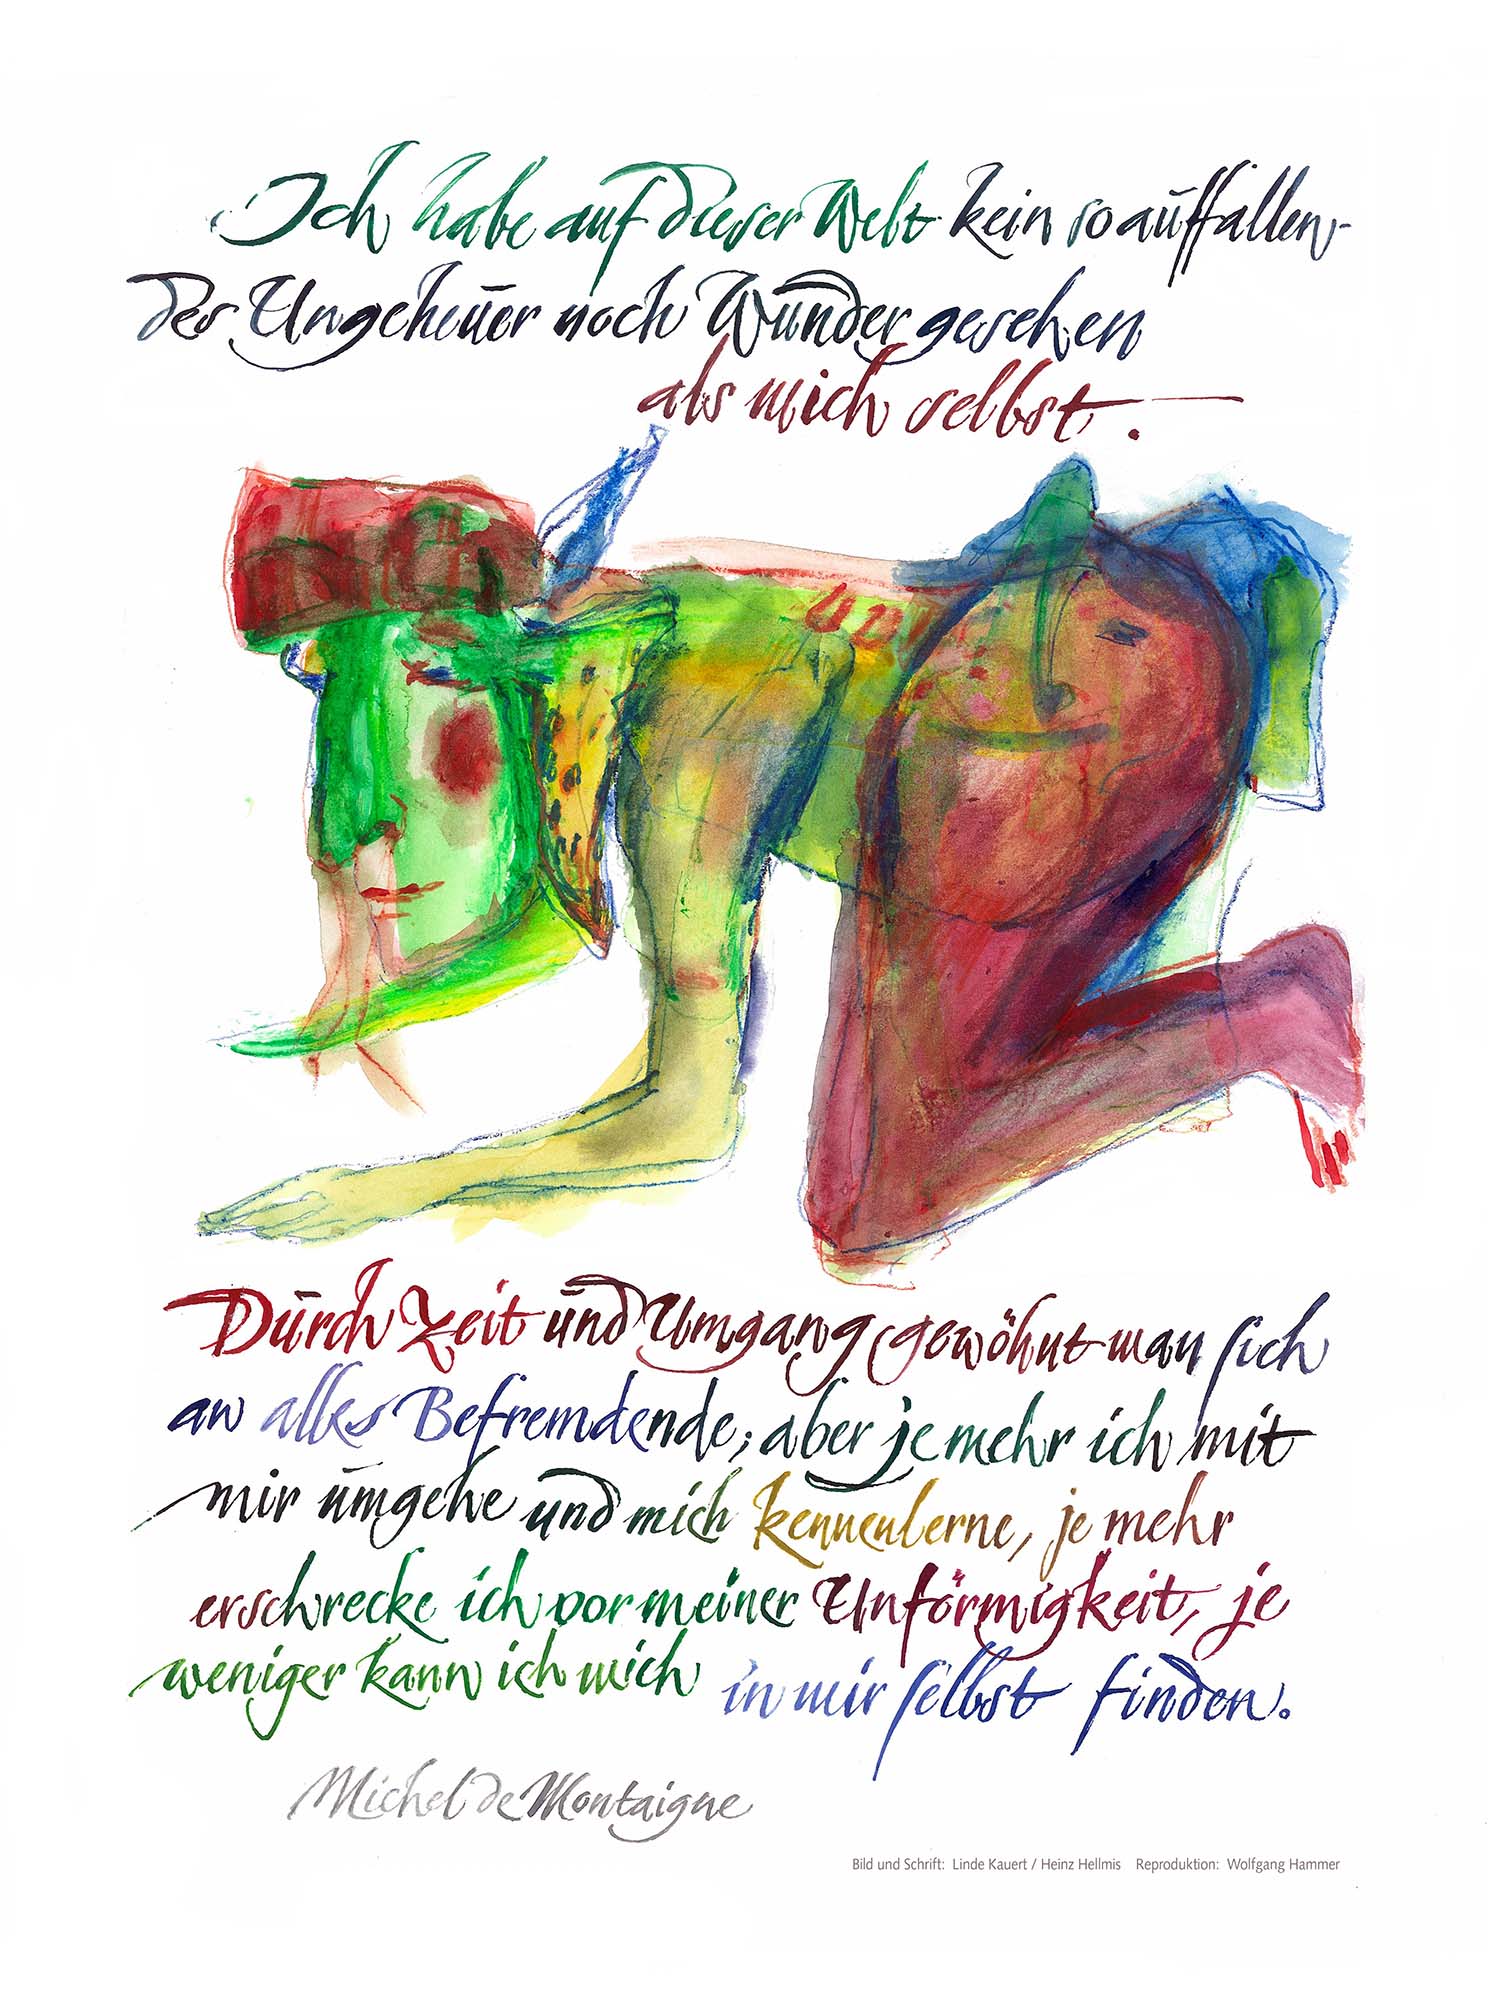 Ich habe auf dieser Welt kein so auffallen-
des Ungeheuer noch Wunder gesehen
als mich selbst. —
Durch Zeit und Umgang gewöhnt man sich
an alles Befremdende; aber je mehr ich mit
mir umgehe und mich kennenlerne, je mehr
erschrecke ich vor meiner Unförmigkeit, je
weniger kann ich mich in mir selbst finden.
Michel de Montaigne
Bild und Schrift: Linde Kauert / Heinz Hellmis Reproduktion: Wolfgang Hammer